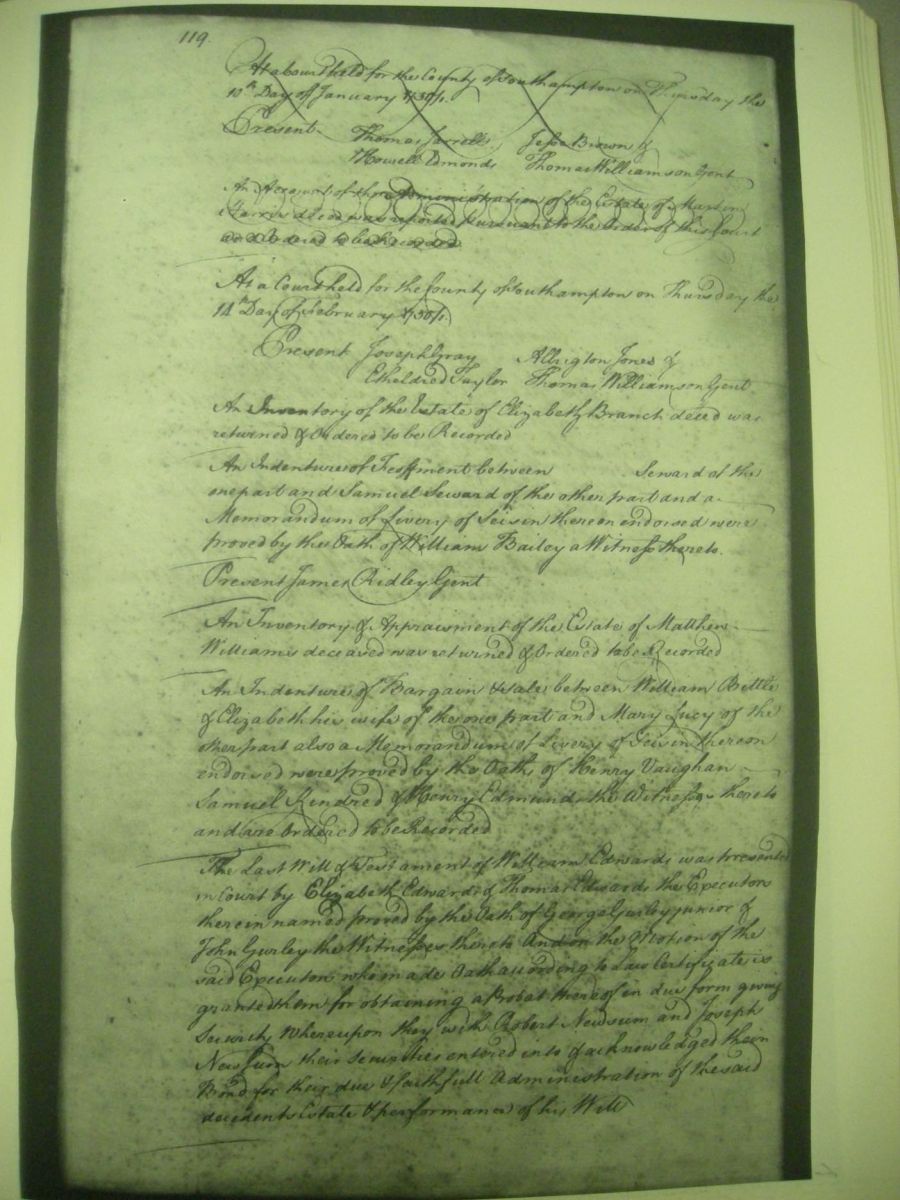 119.
At a Court held for the County of Southampton on Thursday the
10th Day of January 1750/1.
Present Thomas Jarrell, Jesse Brown &
Howell Edmonds Thomas Williamson Gent
An Account of the Administration of the Estate of
Harris deced was reported pursuant to the Order of this Court
and Ordered to be Recorded
At a Court held for the County of Southampton on Thursday the
14th Day of February 1750/1.
Present Joseph Gray Albrigton Jones &
Etheldred Taylor Thomas Williamson Gent
An Inventory of the Estate of Elizabeth Branch deced was
returned & Ordered to be Recorded
An Indenture of Feoffment between Seward of the
one part and Samuel Seward of the other part and a
Memorandum of Livery of Seisin thereon endorsed were
proved by the Oath of William Bailey a Witness thereto.
Present James Ridley Gent
An Inventory & Appraisment of the Estate of Matthew
Williams deceased was returned & Ordered to be Recorded
An Indenture of Bargain & Sale between William Bittle
& Elizabeth his wife of the one part and Mary Lucy of the
other part also a Memorandum of Livery of Seisin thereon
endorsed were proved by the Oaths of Henry Vaughan
Samuel Kindred & Henry Edmunds the Witnesses thereto
and are Ordered to be Recorded
The Last Will & Testament of William Edwards was presented
in Court by Elizabeth Edwards & Thomas Edwards the Executors
therein named proved by the Oath of George Gurley junior &
John Gurley the Witnesses thereto And on the Motion of the
said Executors who made Oath according to Law Certificate is
granted them for obtaining a Probat thereof in due form giving
Security Whereupon they with Robert Newsum and Joseph
Newsum their Securities entered into & acknowledged their
Bond for their due & faithfull Administration of the said
decedents Estate & performance of his Will